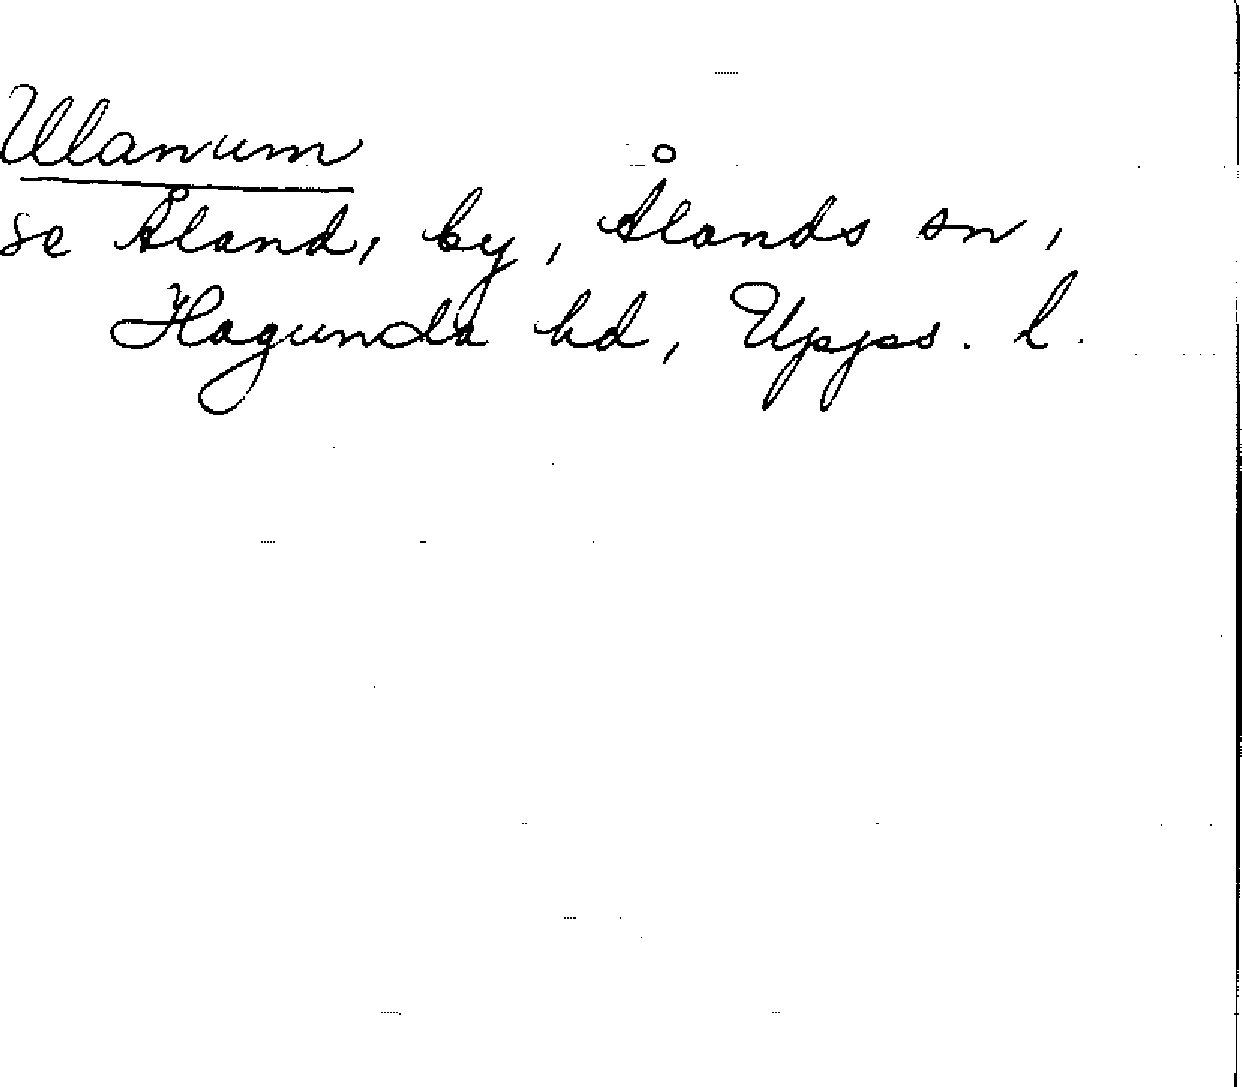 Ulanum
se Åland, by, Ålands sn,
Hagunda hd, Upps. l.